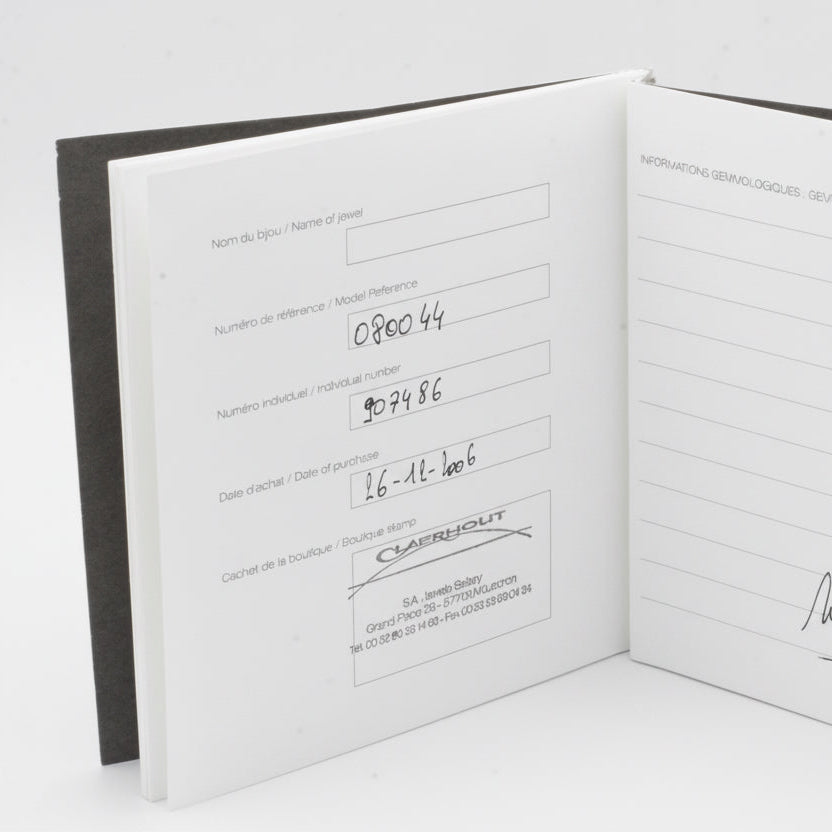 Nom du bijou / Name of jewel
Numéro de référence / Model Reference
080044
Numéro individuel / Individual number
907486
Date d'achat / Date of purchase
26-12-2006
Cachet de la boutique / Boutique stamp
CLAERHOUT
SA
Grand Place 28 - 
Tel. 00 - Fax 00
INFORMATIONS GEMMOLOGIQUES